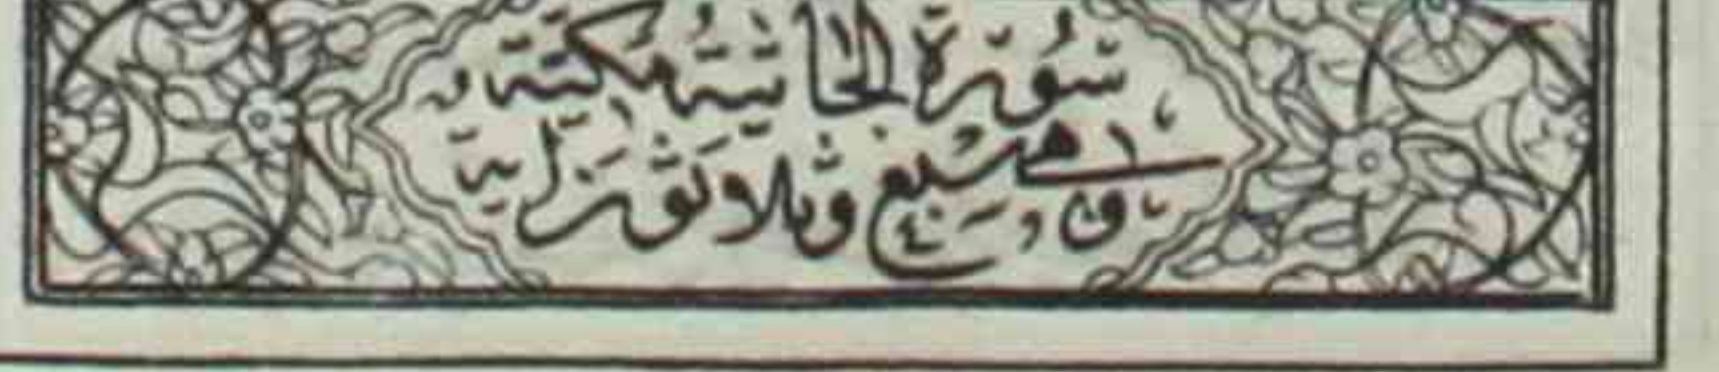 سُورَةُ الْجَاثِيَةِ مَكِّيَّةٌ وَ
هِيَ سَبْعٌ وَثَلَاثُونَ آيَةً